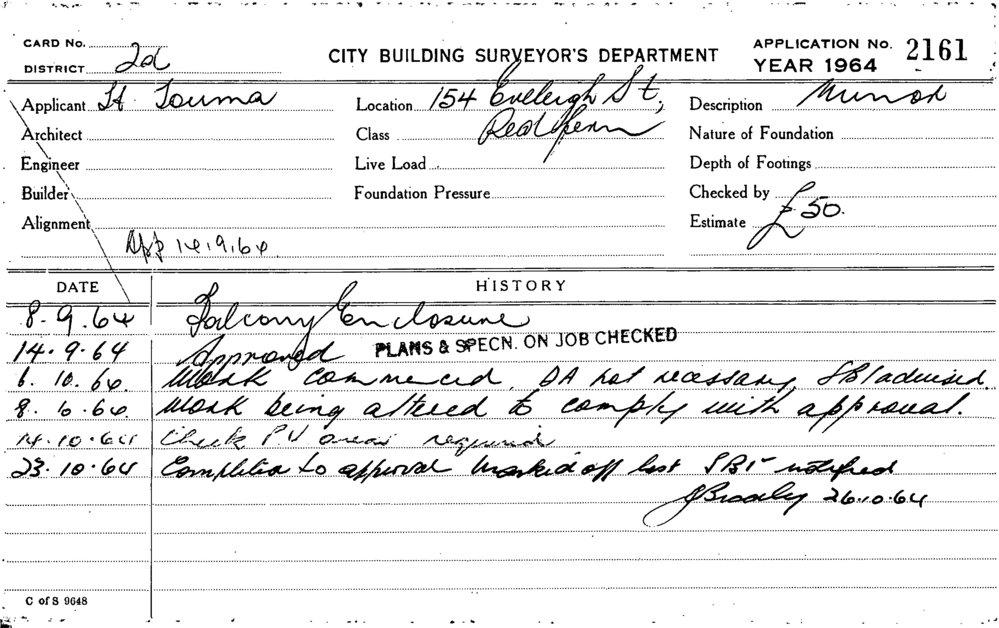 CARD No.
DISTRICT 2d
CITY BUILDING SURVEYOR'S DEPARTMENT
APPLICATION No. 2161
YEAR 1964
Applicant Touma
Location 154 Eveleigh St,
Redfern
Description Minor
Architect
Class
Nature of Foundation
Engineer
Live Load
Depth of Footings
Builder
Foundation Pressure
Checked by
Alignment
Estimate £50.
App 14.9.64
DATE HISTORY
8.9.64 Balcony Enclosure
14.9.64 Approved PLANS & SPECN. ON JOB CHECKED
6.10.64. Work commenced. DA not necessary SBI advised
8.10.64. Work being altered to comply with approval.
14.10.64 Check areas required
23.10.64 Completed to approval Marked off list SBI notified
26.10.64
C of S 9648